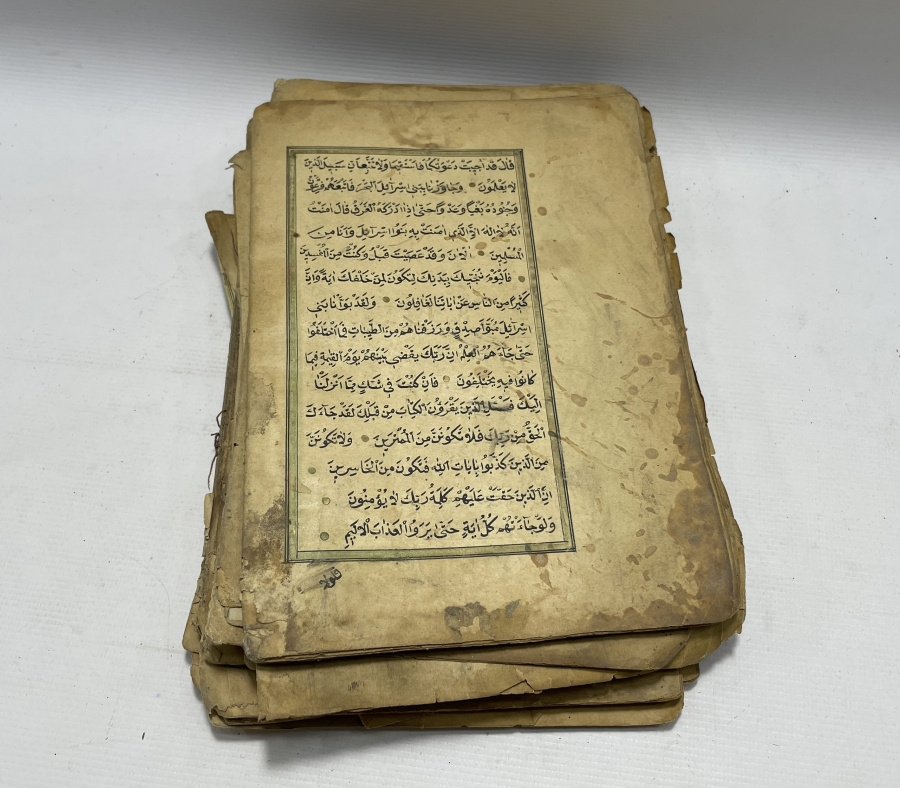 قَالَ قَد اُجِيبَتْ دَعْوَتُكُمَا فَاسْتَقِيمَا وَلَا تَتَّبِعَانِّ سَبِيلَ الَّذِينَ
لَا يَعْلَمُونَ وَجَاوَزْنَا بِبَنِي اِسْرَائِلَ الْبَحْرَ فَاَتْبَعَهُمْ فِرْعَوْنُ
وَجُنُودُهُ بَغْيًا وَعَدْوًا حَتَّى اِذَا اَدْرَكَهُ الْغَرَقُ قَالَ اٰمَنْتُ
اَنَّهُ لَا اِلٰهَ اِلَّا الَّذِي اٰمَنَتْ بِهِ بَنُوا اِسْرَائِلَ وَاَنَا مِنَ
الْمُسْلِمِينَ اٰلْاٰنَ وَقَدْ عَصَيْتَ قَبْلُ وَكُنْتَ مِنَ الْمُفْسِدِينَ
فَالْيَوْمَ نُنَجِّيكَ بِبَدَنِكَ لِتَكُونَ لِمَنْ خَلْفَكَ اٰيَةً وَاِنَّ
كَثِيرًا مِنَ النَّاسِ عَنْ اٰيَاتِنَا لَغَافِلُونَ وَلَقَدْ بَوَّاْنَا بَنِي
اِسْرَائِلَ مُبَوَّاَ صِدْقٍ وَرَزَقْنَاهُمْ مِنَ الطَّيِّبَاتِ فَمَا اخْتَلَفُوا
حَتَّى جَاءَهُمُ الْعِلْمُ اِنَّ رَبَّكَ يَقْضِي بَيْنَهُمْ يَوْمَ الْقِيٰمَةِ فِيمَا
كَانُوا فِيهِ يَخْتَلِفُونَ فَاِنْ كُنْتَ فِي شَكٍّ مِمَّا اَنْزَلْنَا
اِلَيْكَ فَسْئَلِ الَّذِينَ يَقْرَؤُنَ الْكِتَابَ مِنْ قَبْلِكَ لَقَدْ جَاءَكَ
الْحَقُّ مِنْ رَبِّكَ فَلَا تَكُونَنَّ مِنَ الْمُمْتَرِينَ وَلَا تَكُونَنَّ
مِنَ الَّذِينَ كَذَّبُوا بِاٰيَاتِ اللهِ فَتَكُونَ مِنَ الْخَاسِرِينَ
اِنَّ الَّذِينَ حَقَّتْ عَلَيْهِمْ كَلِمَةُ رَبِّكَ لَا يُؤْمِنُونَ
وَلَوْ جَاءَتْهُمْ كُلُّ اٰيَةٍ حَتَّى يَرَوُا الْعَذَابَ الْاَلِيمَ
فلولا